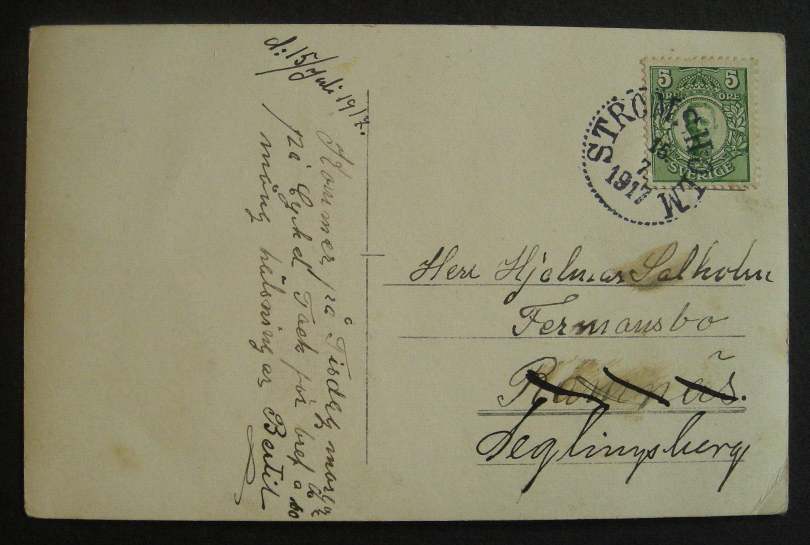 d: 15/Juli 1917.
Kommer på Tisdag
på Cykel Tack för bref
mång hälsningar Bertil
5 5
ÖRE
SVERIGE
STRÖMSHOLM
15
7
1917
Herr Hjalmar Salholm
Fermansbo
Ramnäs.
Seglingsberg